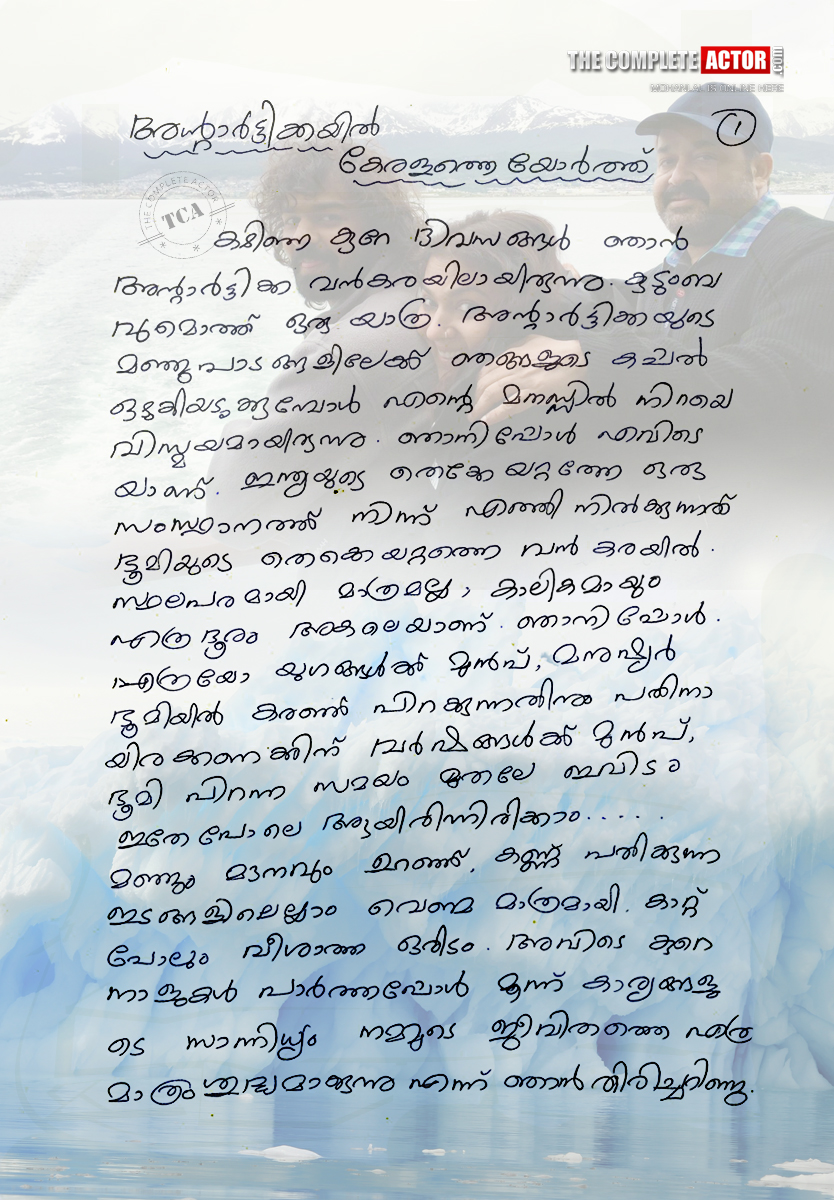 THE COMPLETE ACTOR .com
MOHANLAL IS ONLINE HERE
അന്റാർട്ടിക്കയിൽ
൧
കേരളത്തെയോർത്ത്
THE COMPLETE ACTOR
TCA
കഴിഞ്ഞ കുറേ ദിവസങ്ങൾ ഞാൻ
അന്റാർട്ടിക്ക വൻകരയിലായിരുന്നു. കുടുംബ
വുമൊത്ത് ഒരു യാത്ര. അന്റാർട്ടിക്കയുടെ
മഞ്ഞുപാടങ്ങളിലേക്ക് ഞങ്ങളുടെ കപ്പൽ
ഒഴുകിയടുക്കുമ്പോൾ എന്റെ മനസ്സിൽ നിറയെ
വിസ്മയമായിരുന്നു. ഞാനിപ്പോൾ എവിടെ
യാണ്. ഇന്ത്യയുടെ തെക്കേയറ്റത്തേ ഒരു
സംസ്ഥാനത്ത് നിന്ന് എത്തി നിൽക്കുന്നത്
ഭൂമിയുടെ തെക്കെയറ്റത്തെ വൻ കരയിൽ.
സ്ഥലപരമായി മാത്രമല്ല, കാലികമായും
എത്ര ദൂരം അകലെയാണ്. ഞാനിപ്പോൾ.
എത്രയോ യുഗങ്ങൾക്ക് മുൻപ്, മനുഷ്യർ
ഭൂമിയിൽ കരഞ്ഞ് പിറക്കുന്നതിനും പതിനാ
യിരക്കണക്കിന് വർഷങ്ങൾക്ക് മുൻപ്,
ഭൂമി പിറന്ന സമയം മുതലേ ഇവിടം
ഇതേ പോലെ ആയിരുന്നിരിക്കാം.....
മഞ്ഞും മൗനവും ഉറഞ്ഞ്, കണ്ണ് പതിക്കുന്ന
ഇടങ്ങളിലെല്ലാം വെണ്മ മാത്രമായി. കാറ്റ്
പോലും വീശാത്ത ഒരിടം. അവിടെ കുറെ
നാളുകൾ പാർത്തപ്പോൾ മൂന്ന് കാര്യങ്ങളു
ടെ സാന്നിധ്യം നമ്മുടെ ജീവിതത്തെ എത്ര
മാത്രം ശുദ്ധമാക്കുന്നു എന്ന് ഞാൻ തിരിച്ചറിഞ്ഞു.